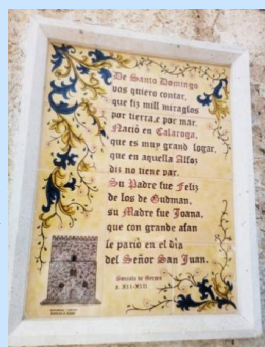 De Santo Domingo
vos quiero contar,
que fiz mill miraglos
por tierra,e por mar.
Nació en Calaroga,
que es muy grand logar,
que en aquella Alfoz
diz no tiene par.
Su Padre fue Feliz
de los de Gudman,
su Madre fue Joana,
que con grande afan
le parió en el dia
del Señor San Juan.
Gonzalo de Berceo
s. XII-XIII